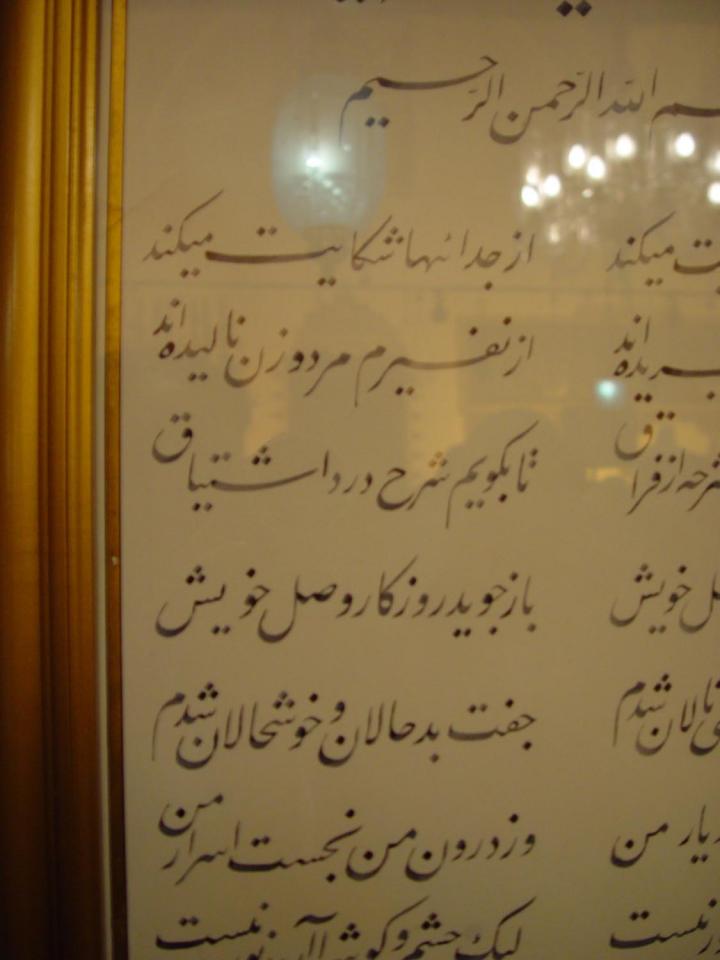 بسم الله الرّحمن الرّحیم
میکند از جدائیها شکایت میکند
ببریده اند از نفیرم مرد و زن نالیده اند
شرحه از فراق تا بگویم شرح درد اشتیاق
خویش باز جوید روزگار وصل خویش
نالان شدم جفت بدحالان و خوشحالان شدم
یار من وز درون من نجست اسرار من
نیست لیک چشم و گوش را آن نور نیست